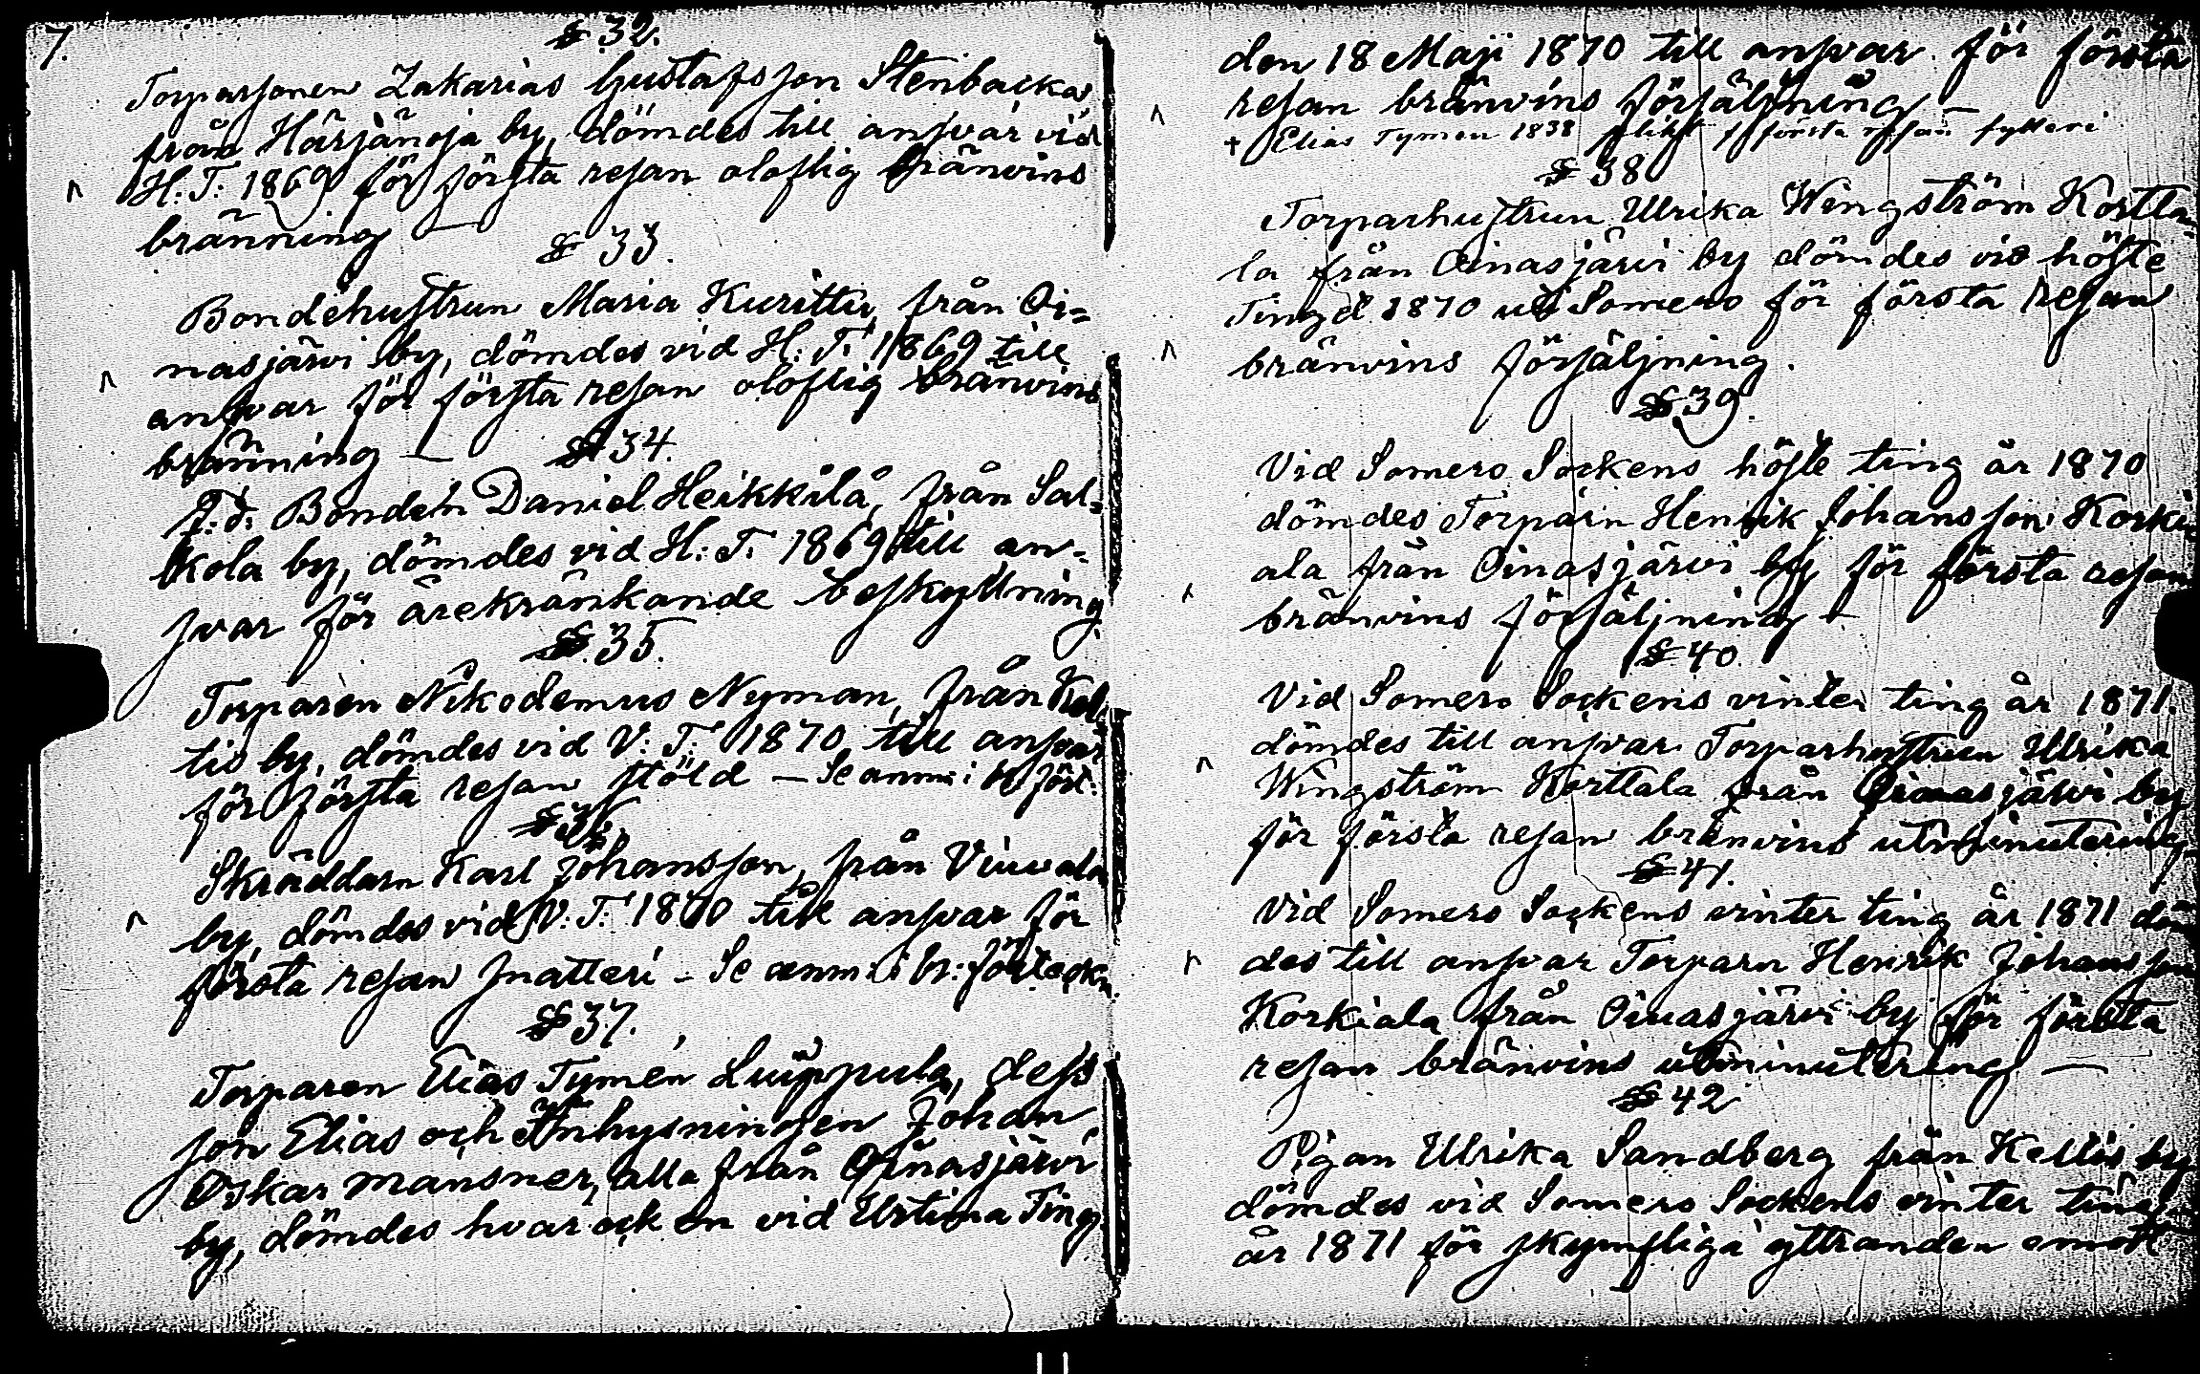 7.
§ 32.
Torparsonen Zakarias Gustafsson Stenbacka,
från Härjänoja by, dömdes till ansvar vid
H: T: 1869 för första resan oloflig bränvins
bränning —
§ 33.
Bondehustrun Maria Kurittu, från Oi=
nasjärvi by, dömdes vid H: T: 1869 till
ansvar för första resan oloflig bränvins
bränning —
§ 34.
F: d: Bonden Daniel Heikkilä, från Sal=
kola by, dömdes vid H: T: 1869 till an=
svar för ärekränkande beskyllning.
§ 35.
Torparen Nikodemus Nyman, från Kel
tis by, dömdes vid V: T: 1870 till ansvar
för första resan stöld — Se anm: i
§ 36.
Skräddarn Karl Johansson, från Viuvala
by, dömdes vid V: T: 1870 till ansvar för
första resan snatteri — Se anm: i
§ 37.
Torparen Elias Tymén Luippula, dess
son Elias och Inhysningen Johan
Oskar Mansner, alla från Oinasjärvi
by, dömdes hvar och en vid Urtima Ting
den 18 Maji 1870 till ansvar för första
resan bränvins försäljning —
+ Elias Tymen 1838 första resan fylleri
§ 38
Torparhustrun Ulrika Wingström Kortta=
la från Oinasjärvi by dömdes vid höste
Tinget 1870 uti Somero för första resan
bränvins försäljning.
§ 39.
Vid Somero Sockens höste ting år 1870
dömdes Torparn Henrik Johansson Korki
ala från Oinasjärvi by för första resan
bränvins försäljning —
§ 40.
Vid Somero Sockens vinter ting år 1871.
dömdes till ansvar Torparhustrun Ulrika
Wingström Korttala från Oinasjärvi by
för första resan bränvins utminutering
§ 41.
Vid Somero Sockens vinter ting år 1871 döm
des till ansvar Torparn Henrik Johansson
Korkiala från Oinasjärvi by för första
resan bränvins utminutering —
§ 42
Pigan Ulrika Sandberg från Keltis by
dömdes vid Somero Sockens vinter ting
år 1871 för skymfliga yttranden emot